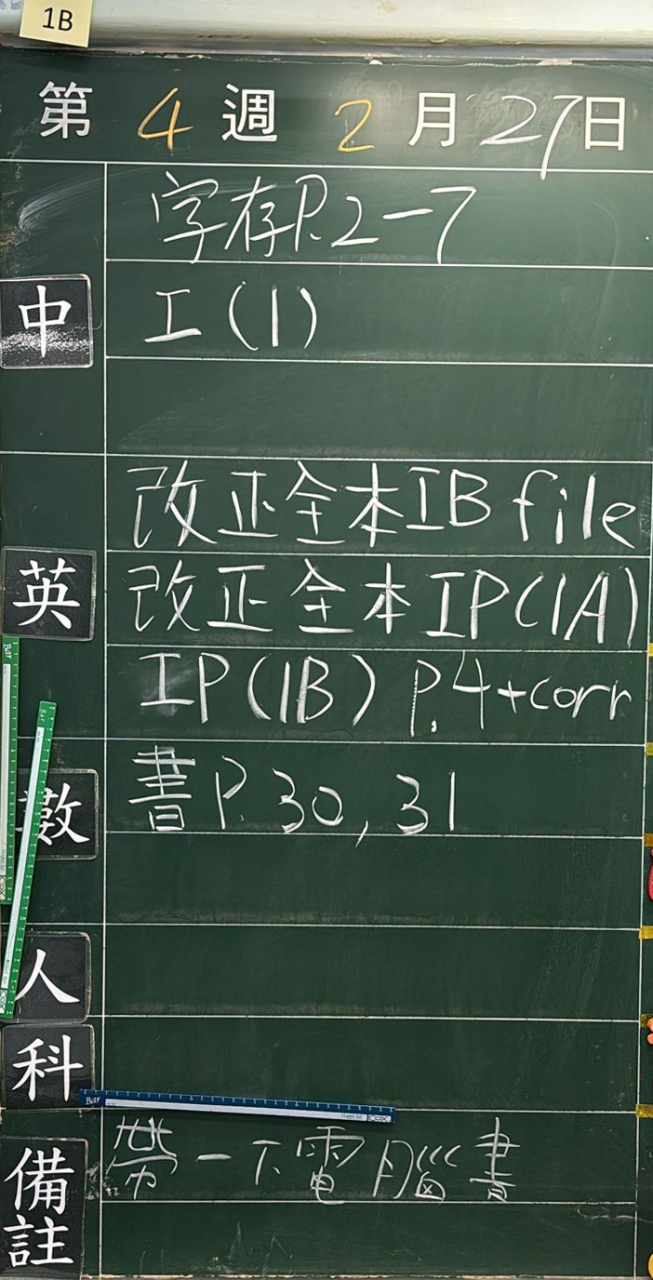 1B
第 4 週 2 月 27 日
字存P.2-7
中
工(1)
改正全本IB file
英
改正全本IP(1A)
IP(1B) P.4+corr
數
書P.30, 31
人
科
帶一下電腦書
備註